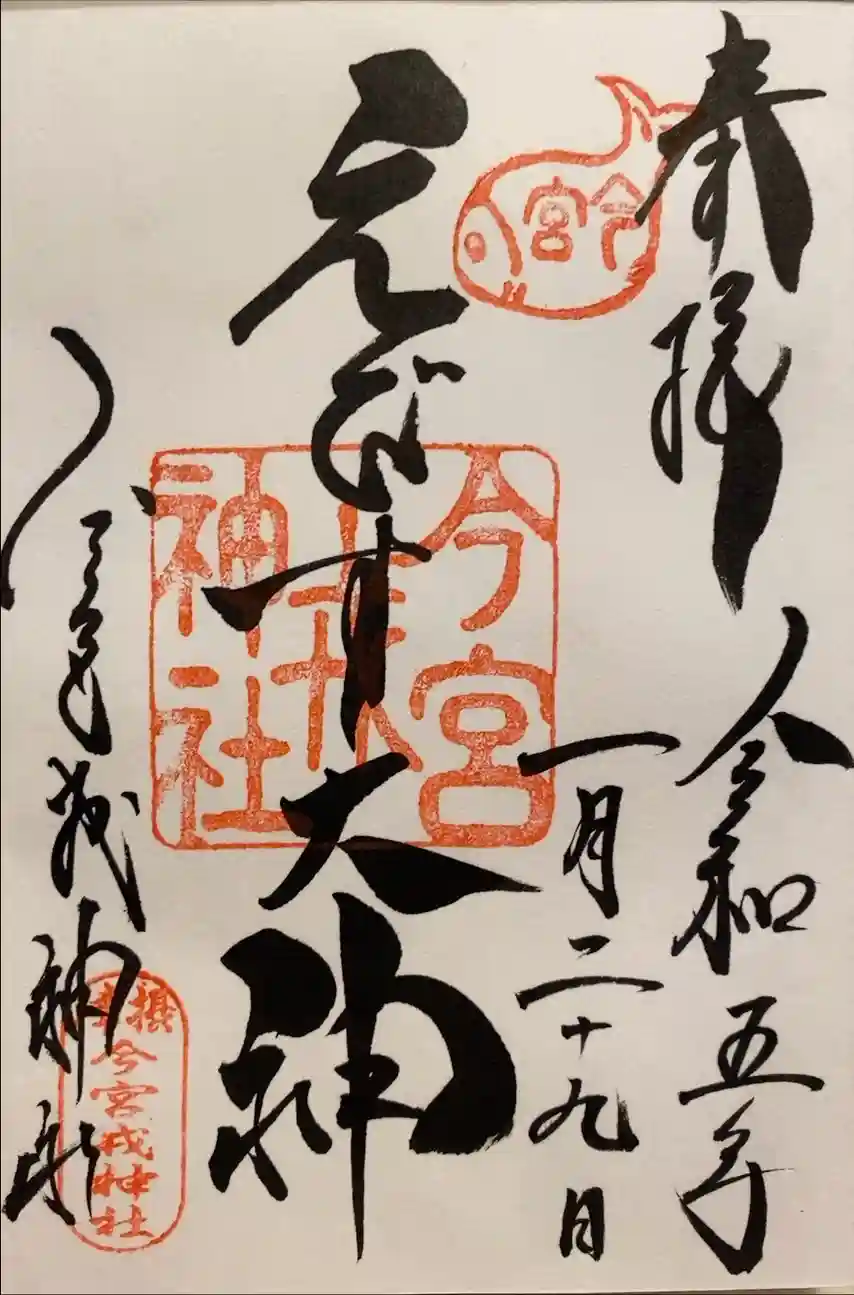 奉拝
令和五年
一月二十九日
今宮
えびす大神
今宮戎神社
今宮戎神社
摂
今宮戎神社